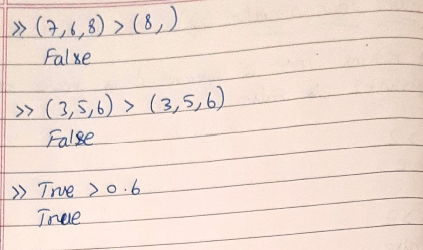 >> (7,6,8) > (8,)
False
>> (3,5,6) > (3,5,6)
False
>> True > 0.6
True